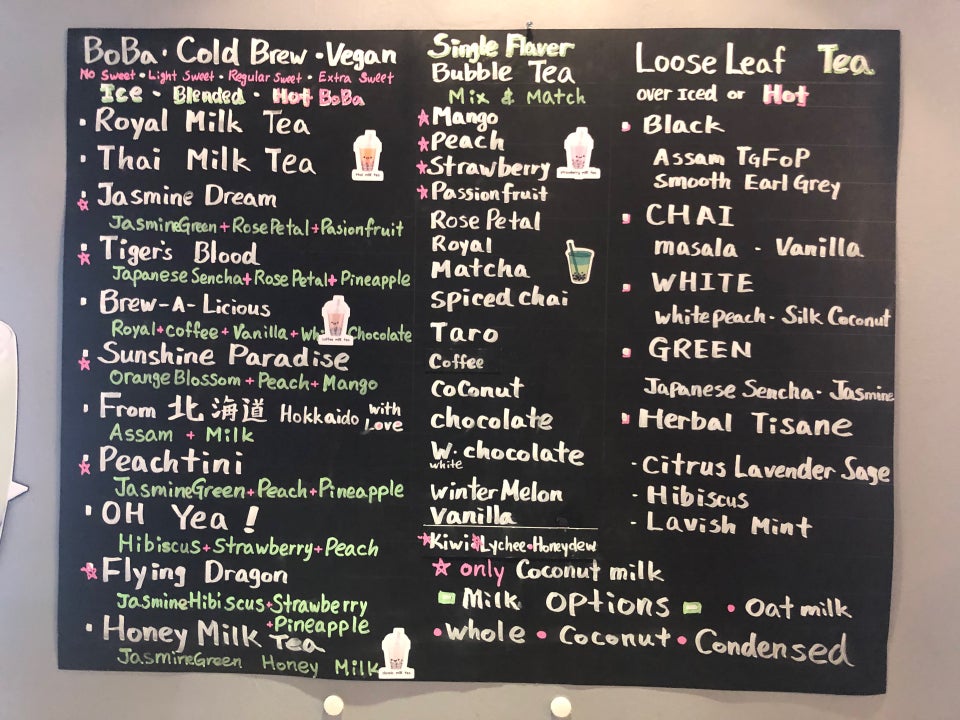 BoBa · Cold Brew · Vegan
No Sweet · Light Sweet · Regular Sweet · Extra Sweet
Ice - Blended - Hot BoBa
· Royal Milk Tea
· Thai Milk Tea
☆ Jasmine Dream
JasmineGreen + Rose Petal + Pasionfruit
☆ Tiger's Blood
Japanese Sencha + Rose Petal + Pineapple
· Brew-A-Licious
Royal + coffee + Vanilla + Chocolate
☆ Sunshine Paradise
Orange Blossom + Peach + Mango
· From 北海道 Hokkaido with Love
Assam + Milk
☆ Peachtini
JasmineGreen + Peach + Pineapple
· OH Yea!
Hibiscus + Strawberry + Peach
☆ Flying Dragon
JasmineHibiscus + Strawberry
+ Pineapple
· Honey Milk Tea
JasmineGreen Honey Milk
Single Flaver
Bubble Tea
Mix & Match
☆ Mango
☆ Peach
☆ Strawberry
☆ Passionfruit
Rose Petal
Royal
Matcha
Spiced chai
Taro
Coffee
CoConut
chocolate
W. chocolate
white
Winter Melon
Vanilla
☆ Kiwi ☆ Lychee · Honeydew
☆ only Coconut milk
Milk options · Oat milk
· whole · Coconut · Condensed
Loose Leaf Tea
over Iced or Hot
· Black
Assam TGFoP
Smooth Earl Grey
· CHAI
masala - Vanilla
· WHITE
white peach - Silk Coconut
· GREEN
Japanese Sencha - Jasmine
· Herbal Tisane
- Citrus Lavender Sage
- Hibiscus
- Lavish Mint